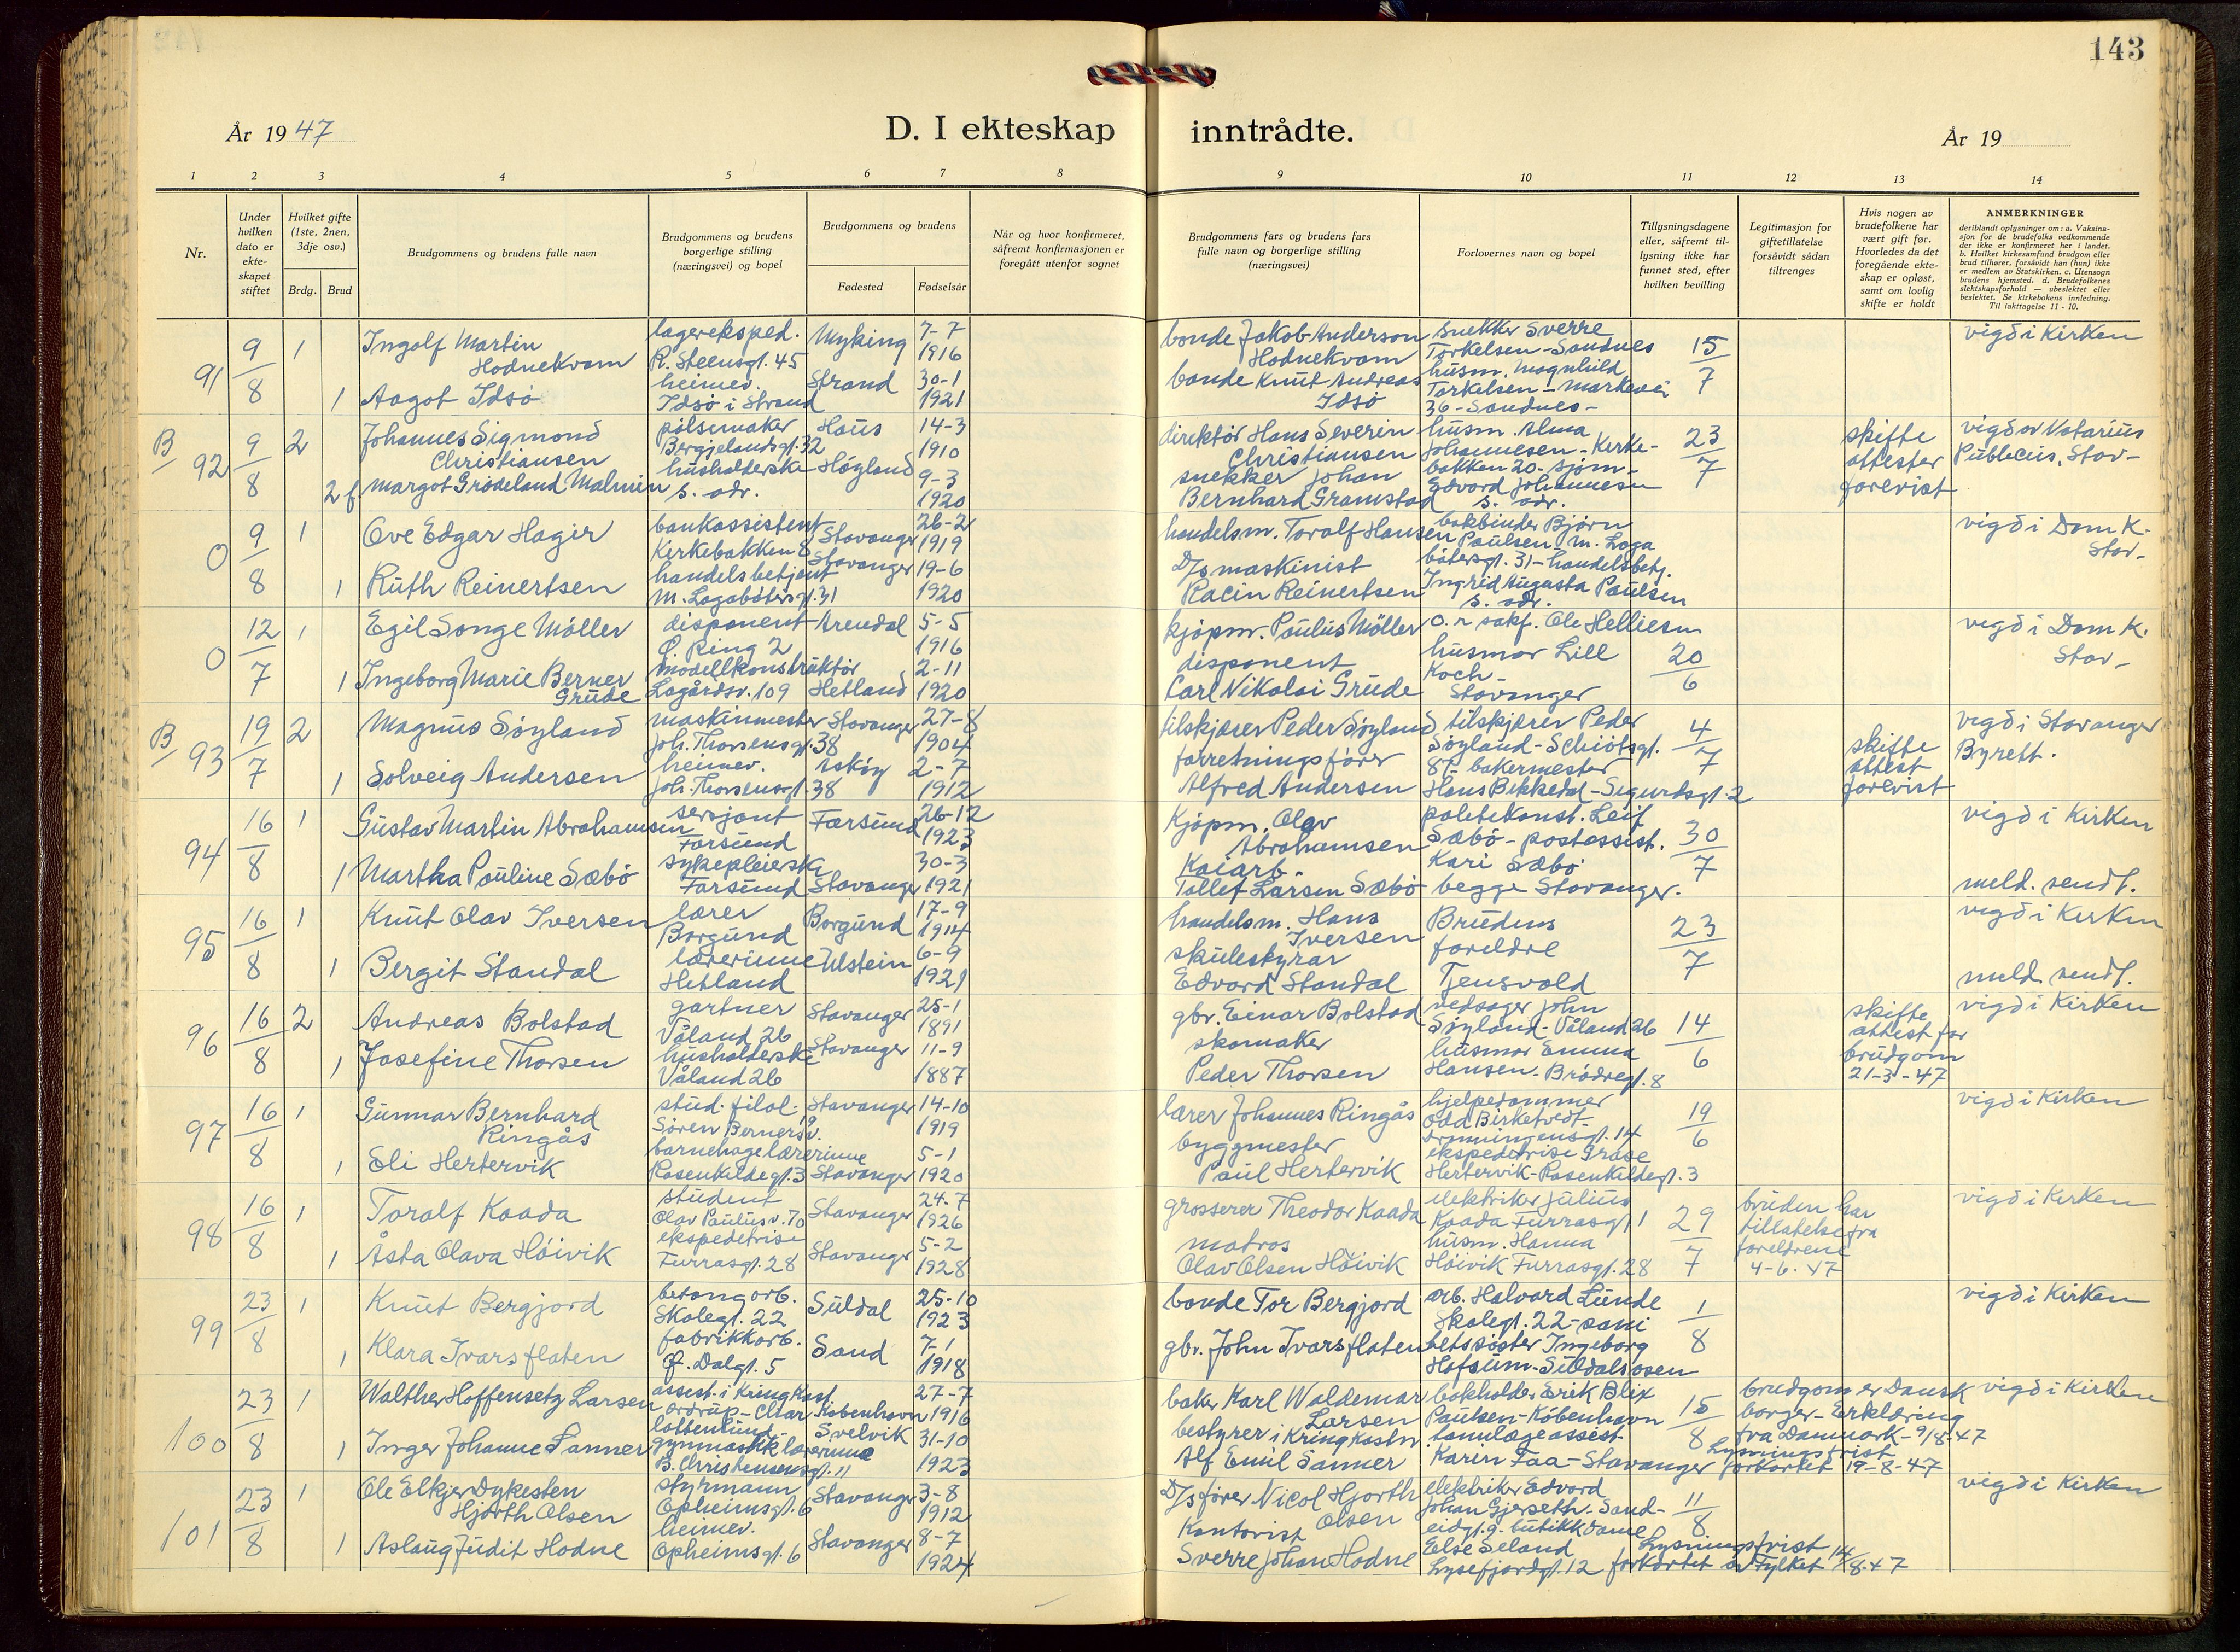 143
År 1947
D. I ekteskap inntrådte.
År 19
1 2 3 4 5 6 7 8 9 10 11 12 13 14
Nr.
Under hvilken dato er ekte-skapet stiftet
Hvilket gifte (1ste, 2nen, 3dje osv.)
Brdg. Brud
Brudgommens og brudens fulle navn
Brudgommens og brudens borgerlige stilling (næringsvei) og bopel
Brudgommens og brudens
Fødested Fødselsår
Når og hvor konfirmeret, såfremt konfirmasjonen er foregått utenfor sognet
Brudgommens fars og brudens fars fulle navn og borgerlige stilling (næringsvei)
Forlovernes navn og bopel
Tillysningsdagene eller, såfremt til-lysning ikke har funnet sted, efter hvilken bevilling
Legitimasjon for giftetillatelse forsåvidt sådan tiltrenges
Hvis nogen av brudefolkene har vært gift før. Hvorledes da det foregående ekte-skap er opløst, samt om lovlig skifte er holdt
ANMERKNINGER
deriblandt oplysninger om: a. Vaksina-sjon for de brudefolks vedkommende der ikke er konfirmeret her i landet. b. Hvilket kirkesamfund brudgom eller brud tilhører, forsåvidt han (hun) ikke er medlem av Statskirken. c. Utensogn brudens hjemsted. d. Brudefolkenes slektskapsforhold — ubeslektet eller beslektet. Se kirkebokens innledning. Til iakttagelse 11 - 10.
91 9/8 1 Ingolf Martin Hodnekvam lagereksped. R. Steensgt. 45 Myking 7-7 1916 bonde Jakob Anderson Hodnekvam snekker Sverre Torkelsen - Sandnes 15/7 vigd i Kirken
1 Aagot Idsø heimev. Idsø i Strand Strand 30-1 1921 bonde Knut Andreas Idsø husm. Magnhild Torkelsen - Markevei 36 - Sandnes -
B 92 9/8 2 Johannes Sigmond Christiansen pølsemaker Bergjelandsgt. 32 Haus 14-3 1910 direktør Hans Severin Christiansen husm. Alma Johannesen - Kirke-bakken 20 - sjøm- 23/7 skifte attester forevist vigd av Notarius Publicus, Stav-
2 f Margot Grødeland Malmin husholderske s. adr. Høgland 9-3 1920 snekker Johan Bernhard Gramstad Edvard Johannesen s. adr.
0 9/8 1 Ove Edgar Hagir bankassistent Kirkebakken 8 Stavanger 26-2 1919 handelsm. Toralf Hansen bokbinder Bjørn Paulsen - M. Laga bøtersgt. 31 - handelsbetj. vigd i Dom K. Stav-
1 Ruth Reinertsen handelsbetjent M. Lagabøtersgt. 31 Stavanger 19-6 1920 D/s maskinist Racin Reinertsen Ingrid Augusta Paulsen s. adr.
0 12/7 1 Egil Songe Møller disponent Ø. Ring 2 Arendal 5-5 1916 kjøpm. Paulus Møller o. r sakf. Ole Helliesen 20/6 vigd i Dom K. Stav-
1 Ingeborg Marie Berner Grude modellkonstruktør Lagårdsv. 109 Hetland 2-11 1920 disponent Carl Nikolai Grude husmor Lill Koch - Stavanger
B 93 19/7 2 Magnus Søyland maskinmester Joh. Thorsensgt. 38 Stavanger 27-8 1904 tilskjærer Peder Søyland tilskjærer Peder Søyland - Schiøtsgt. 4/7 skifte attest forevist vigd i Stavanger Byrett.
1 Solveig Andersen heimev. Joh. Thorsensgt. 38 Askøy 2-7 1912 forretningsfører Alfred Andersen bakermester Hans Bekkedal - Sigurdsgt. 2
94 16/8 1 Gustav Martin Abrahamsen sersjant Farsund Farsund 26-12 1923 Kjøpm. Olav Abrahamsen politikonst. Leif Sæbø - postassist. 30/7 vigd i Kirken
1 Martha Pauline Sæbø sykepleierske Farsund Stavanger 30-3 1921 Kaiarb. Tollef Larsen Sæbø Kari Sæbø begge Stavanger. meld. sendt.
95 16/8 1 Knut Olav Iversen lærer Borgund Borgund 17-9 1914 handelsm. Hans Iversen Brudens foreldre 23/7 vigd i Kirken
1 Bergit Standal lærerinne Hetland Ulstein 6-9 1921 skulestyrar Edvard Standal Tjensvold meld. sendt.
96 16/8 2 Andreas Bolstad gartner Våland 26 Stavanger 25-1 1891 gbr. Einar Bolstad vedsager John Søyland - Våland 26 14/6 skifte attest for brudgom 21-3-47 vigd i Kirken
1 Josefine Thorsen husholderske Våland 26 Stavanger 11-9 1887 skomaker Peder Thorsen husmor Emma Hansen - Brødregt. 8
97 16/8 1 Gunnar Bernhard Ringås stud. filol. Søren Berners v. Stavanger 14-10 1919 lærer Johannes Ringås hjelpedommer Odd Birketvedt - Dronningensgt. 14 19/6 vigd i Kirken
1 Eli Hertervik barnehagelærerinne Rosenkildegt. 3 Stavanger 5-1 1920 byggmester Paul Hertervik ekspeditrise Hertervik - Rosenkildegt. 3
98 16/8 1 Toralf Kaada student Olav Paulus v. 70 Stavanger 24-7 1926 grosserer Theodor Kaada elektriker Julius Kaada Furrasgt 1 29/7 bruden har tillatelse fra foreldrene 4-6-47 vigd i Kirken
1 Åsta Olava Høivik ekspeditrise Furrasgt. 28 Stavanger 5-2 1928 matros Olav Olsen Høivik husm. Hanna Høivik Furrasgt. 28
99 23/8 1 Knut Bergjord betongarb. Skolegt. 22 Suldal 25-10 1923 bonde Tor Bergjord arb. Halvard Lunde Skolegt. 22 - sani 1/8 vigd i Kirken
1 Klara Ivarsflaten fabrikkarb. Ø. Dalgt. 5 Sand 7-1 1918 gbr. John Ivarsflaten betssøster Ingeborg Hofsum - Suldalsosen
100 23/8 1 Walther Hoffensetz Larsen assist. i Kringkast. ordrup - Char-lottenlund - København 27-7 1916 baker Karl Waldemar Larsen bokholder Erik Blix Paulsen - København 15/8 brudgom er Dansk borger - Erklæring fra Danmark - 9/8-47 vigd i Kirken
1 Inger Johanne Sanner gymnastiklærerinne B. Christensensgt. 11 Svelvik 31-10 1923 bestyrer i Kringkastn. Alf Emil Sanner tannlægeassist. Karin Faa - Stavanger Lysningsfrist forkortet 19-8-47
101 23/8 1 Ole Elkjer Dykesten Hjorth Olsen styrmann Opheimsgt. 6 Stavanger 3-8 1912 D/s fører Nicol Hjorth Olsen elektriker Edvard Johan Gjerseth. Sand-eidgt. 9 - butikkdame 11/8 vigd i Kirken
1 Aslaug Judit Hodne heimev. Opheimsgt. 6 Stavanger 8-7 1924 Kontorist Sverre Johan Hodne Else Seland Lysefjordgt. 12 Lysningsfrist forkortet av Fylket 14/8-47